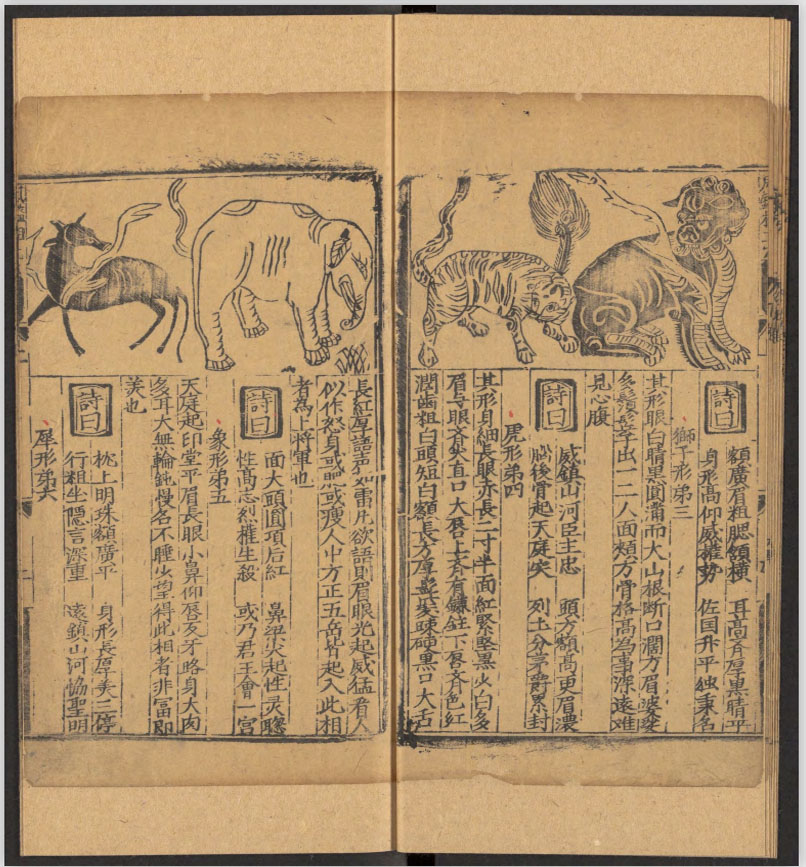 詩曰
額廣眉粗腮頷橫 耳高斉厚黒睛平
身形髙仰威權勢 佐国升平独秉名
獅子形弟三
其形眼白睛黒圓滿而大山根断口濶方眉婆娑
多鬚髪出一二人面頰方骨格髙為事深遠难
見心腹
詩曰
威鎮山河臣主忠 頭方額髙更眉濃
腦後骨起天庭突 列土分茅爵累封
虎形弟四
其形身細長眼亦長二寸半面紅緊堅黒少白多
眉与眼斉尖直口大唇上斉有下唇斉色紅
濶歯粗白頭短白額長方厚髭髪疎硬黒口大舌
長紅厚語声如雷凡欲語則眉眼光起威猛看人
似作怒身或肥或瘦人中方正五岳耸起入此相
者為上将軍也
詩曰
面大頭圓項后紅 鼻梁尖起性灵聡
性髙志烈權生殺 或乃君王會一宫
象形弟五
天庭起印堂平眉長眼小鼻仰唇反牙略身大肉
多耳大無輪鈍慢名不睡少望得此相者非冨即
美也
詩曰
枕上明珠額廣平 身形長厚美三停
行粗坐隠言深重 遠鎮山河協聖明
犀形弟六